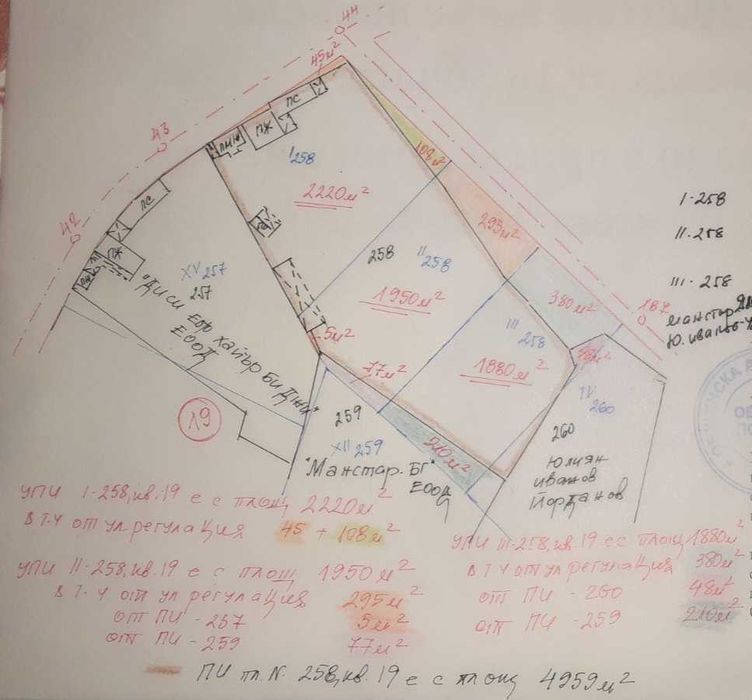 44
45м²
43
ПС
ПЖ
ПМЖ
I 258
108м²
2220м²
42
ПС
ПЖ
295м²
I-258
II-258
III-258
258
II 258
XV 257
257
1950м²
380м²
187
"Диси Еоо Хайър Билдинг"
ЕООД
5м²
III 258
77м²
1880м²
19
259
XII 259
"Манстар. БГ"
ЕООД
210м²
IV
260
260
Юлиян
Иванов
Йорданов
УПИ I-258, кв. 19 е с площ 2220м²
В Т.Ч от ул регулация 45 + 108м²
УПИ II-258, кв. 19 е с площ 1950м²
В Т.Ч от ул регулация 295м²
от ПИ - 257 5м²
от ПИ - 259 77м²
УПИ III-258, кв. 19 е с площ 1880м²
В Т.Ч от ул регулация 380м²
от ПИ - 260 48м²
от ПИ - 259 210м²
ПИ пл. N. 258, кв. 19 е с площ 4959м²